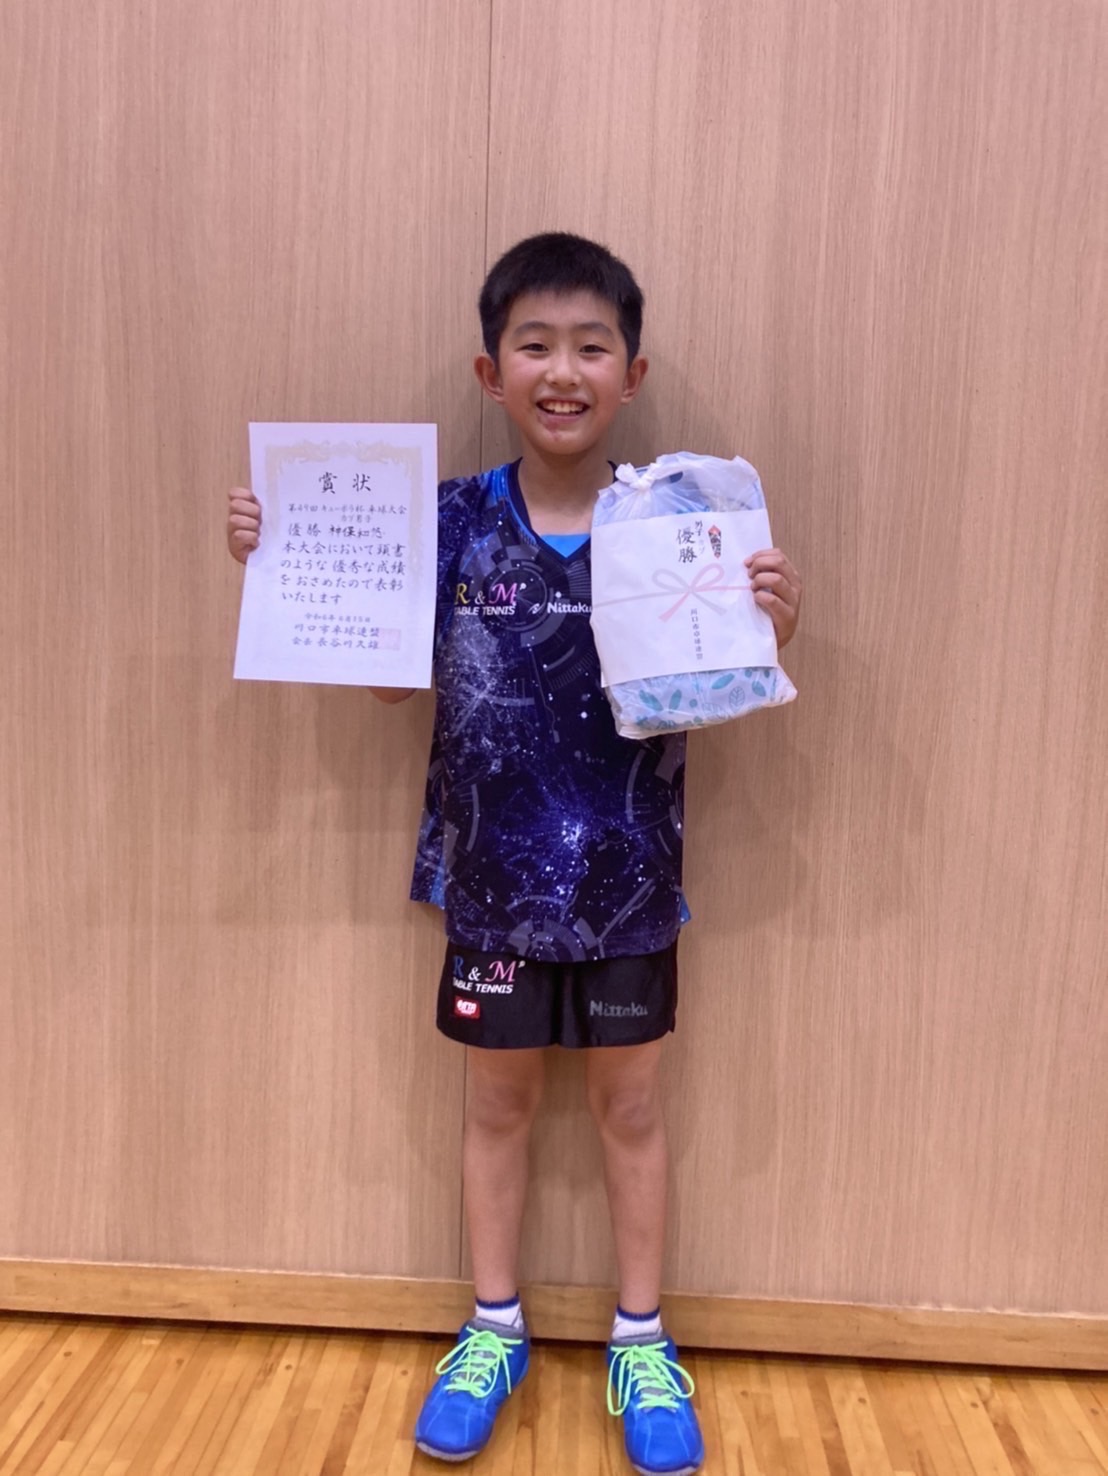 賞状
第49回 キューポラ杯 卓球大会
カブ男子
優勝 神保和悠
本大会において頭書
のような優秀な成績
をおさめたので表彰
いたします
川口市卓球連盟
会長 長谷川久雄
優勝
川口市卓球連盟
R & M
TABLE TENNIS
Nittaku
R & M
TABLE TENNIS
Nittaku